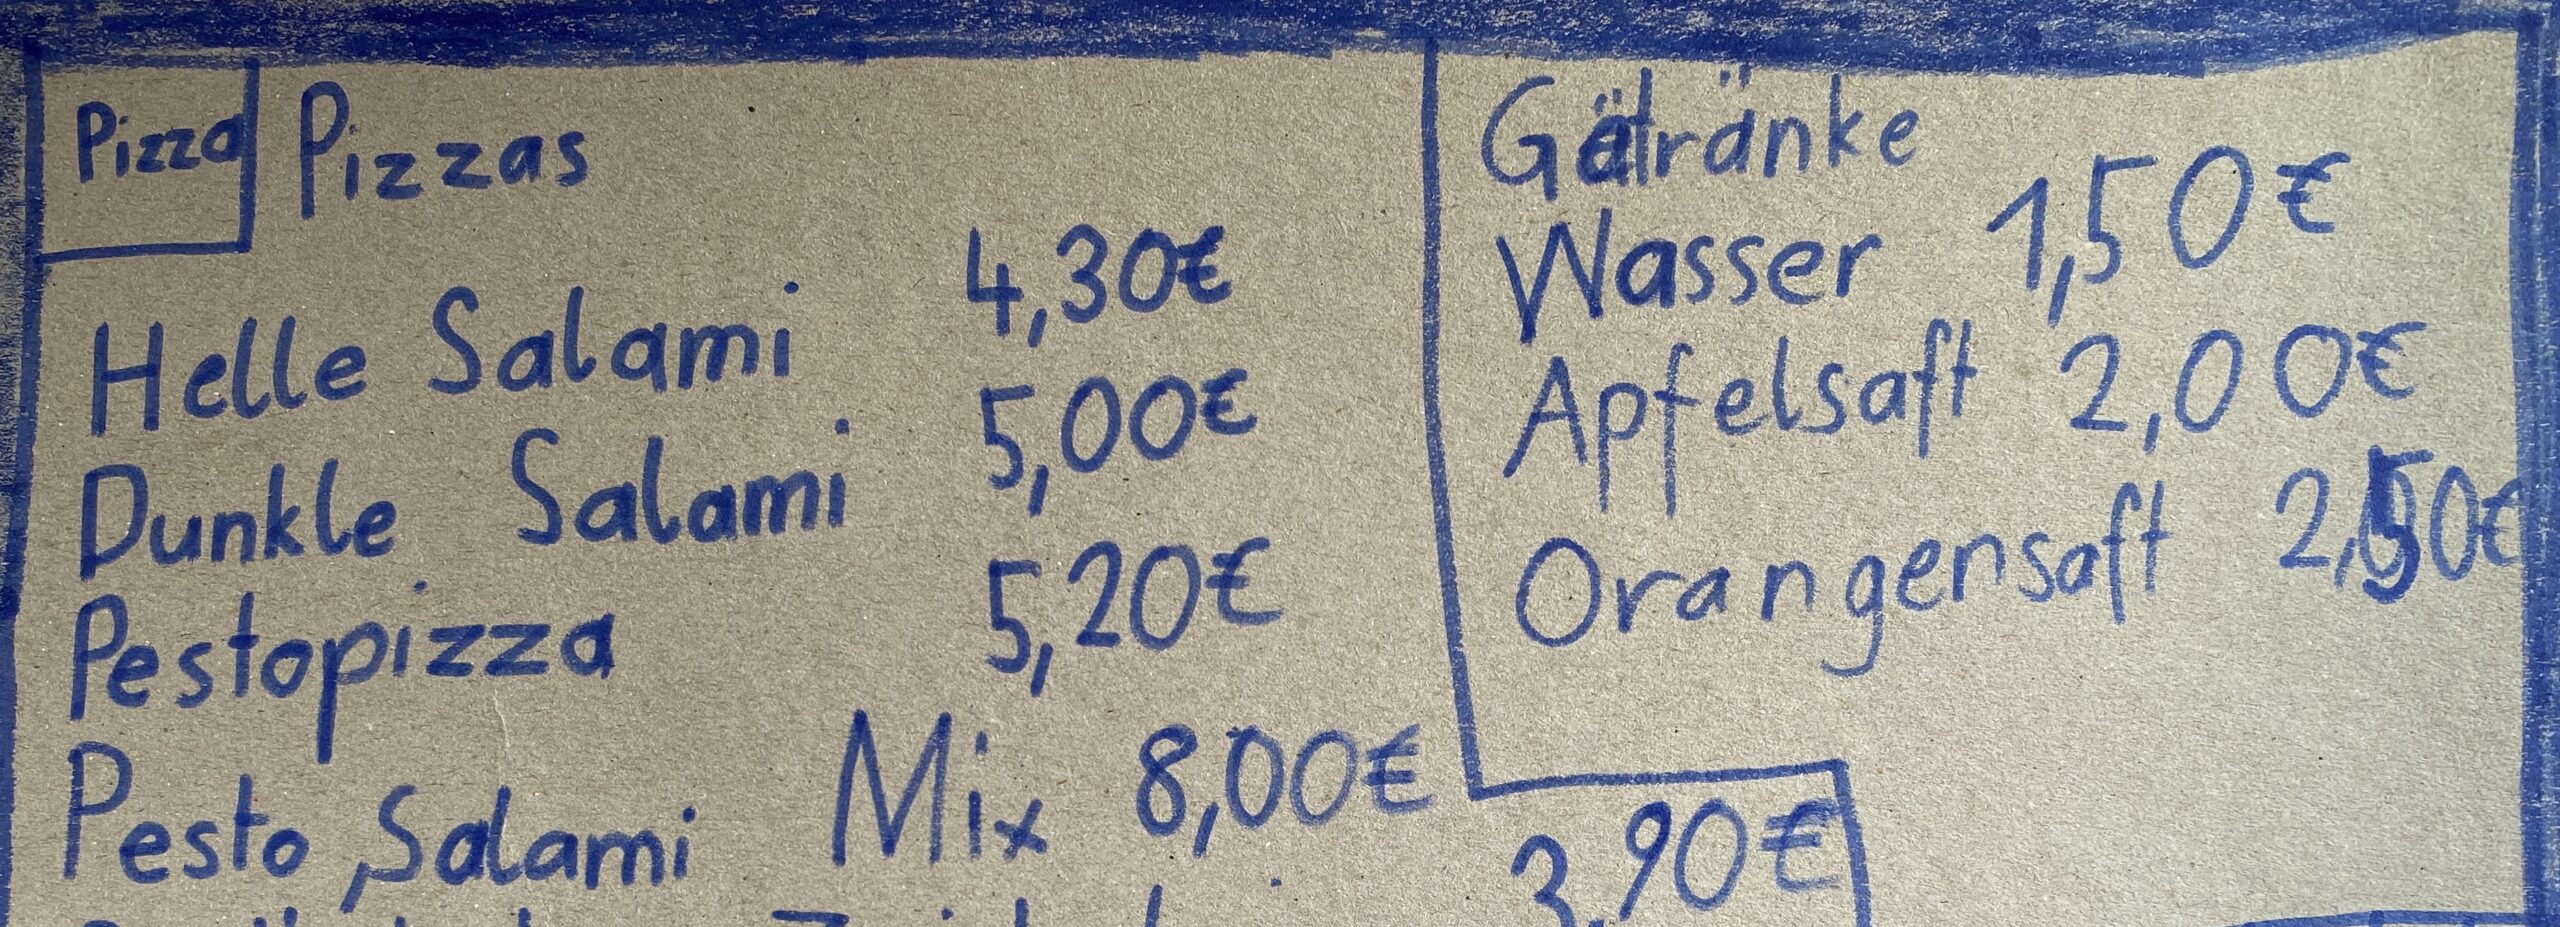 Pizza
Pizzas
Helle Salami 4,30€
Dunkle Salami 5,00€
Pestopizza 5,20€
Pesto, Salami Mix 8,00€
3,90€
Gätränke
Wasser 1,50€
Apfelsaft 2,00€
Orangensaft 2,50€